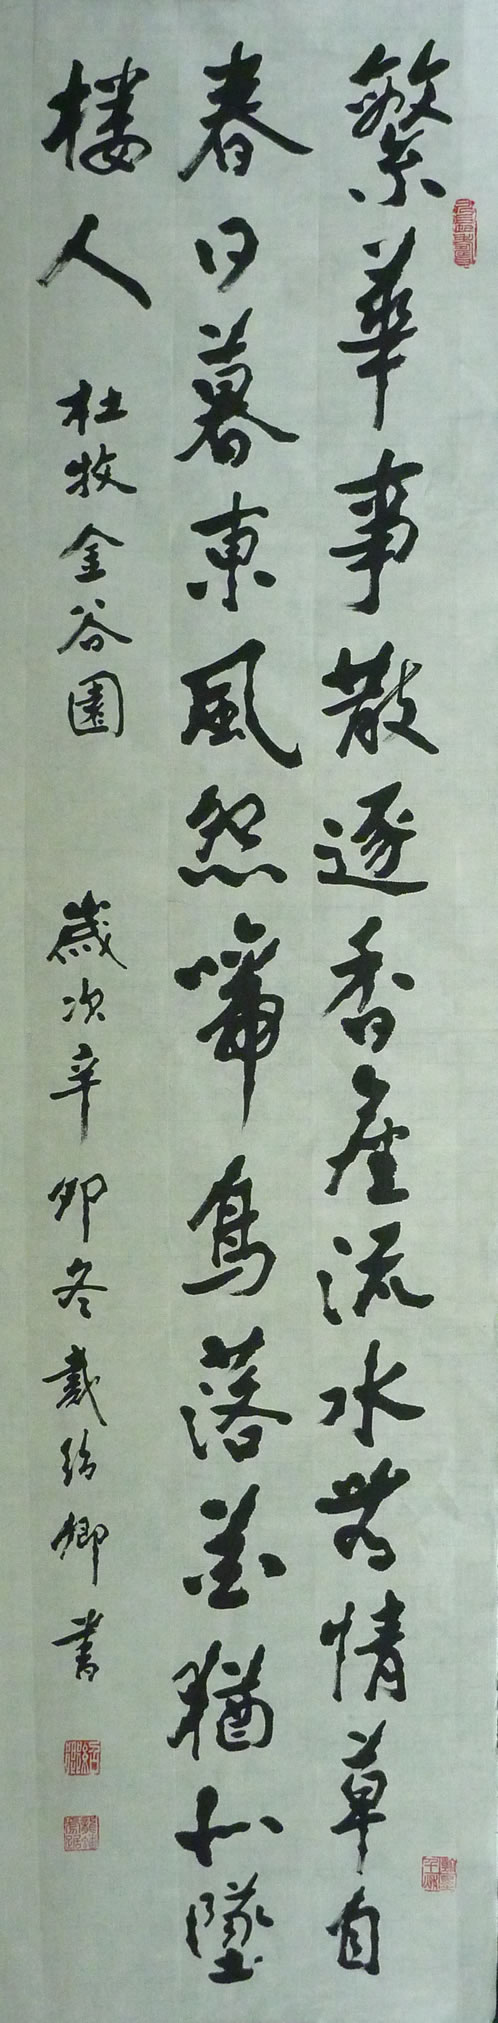 繁華事散逐香塵流水無情草自
春日暮東風怨啼鳥落花猶似墜
樓人 杜牧金谷園 歲次辛卯冬戴紹卿書